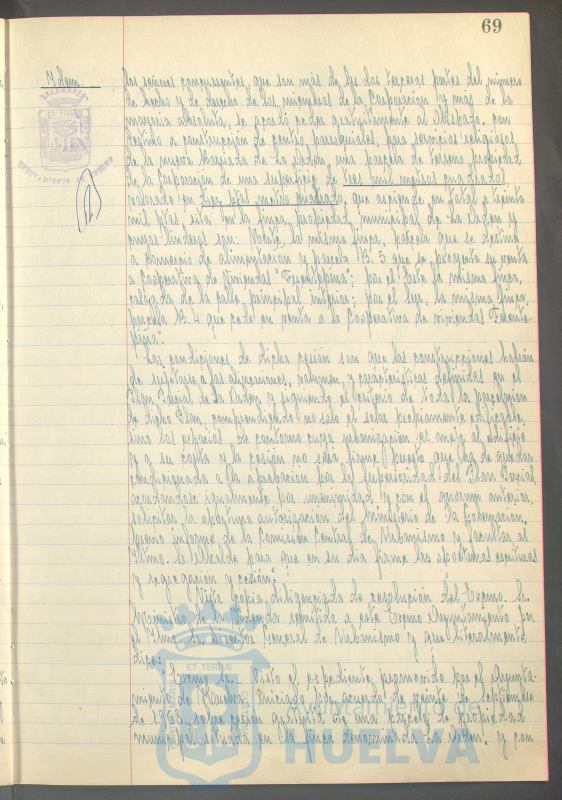 69
Idem.
los señores concurrentes que son más de las dos terceras partes del número
de hecho y de derecho de los miembros de la Corporación y más de la
mayoría absoluta, se acordó ceder gratuitamente al Obispado, con
destino a construcción de centro parroquiales, para servicios religiosos
de la nueva barriada de La Orden, una parcela de terreno propiedad
de la Corporación de una superficie de tres mil metros cuadrados
valorado en diez ptas metro cuadrado, que asciende en total a treinta
mil ptas sita en la finca, propiedad municipal de La Orden y
cuyos linderos son: Norte la misma finca, parcela que se destina
a comercio de alimentación y parcela N. 5 que se proyecta su venta
a Cooperativa de Viviendas "Fuentepiña"; por el Este la misma finca,
calzada de la calle, principal interior; por el Sur, la misma finca,
parcela N. 4 que cede en venta a la Cooperativa de viviendas Fuente-
piña."
Las condiciones de dicha cesión son que las construcciones habrán
de sujetarse a las alineaciones, volumen, y características definidas en el
Plan Parcial de La Orden y siguiendo el criterio de toda la parcelación
de dicho Plan, comprendiendo no solo el solar propiamente edificable,
sino los espacios de contorno cuya urbanización es aneja al edificio
y a su costa y la cesión no será firme puesto que ha de quedar
condicionada a la aprobación por la Superioridad del Plan Parcial,
acordándose igualmente por unanimidad y con el quorum anterior,
solicitar la oportuna autorización del Ministerio de la Gobernación,
previo informe de la Comisión Central de Urbanismo y facultar al
Iltmo. Sr. Alcalde para que en su día firme las oportunas escrituras
y segregación y cesión".
Vista copia diligenciada de resolución del Excmo. Sr.
Ministro de la Vivienda remitida a este Excmo Ayuntamiento por
el Iltmo. Sr. Director General de Urbanismo y que literalmente
dice:
Excmo Sr. Visto el expediente promovido por el Ayunta-
miento de Huelva iniciado por acuerdo de veinte de septiembre
de 1968, sobre cesión gratuita de una parcela de propiedad
municipal situada en la finca denominada "La Orden", y con
Ayuntamiento de
HUELVA